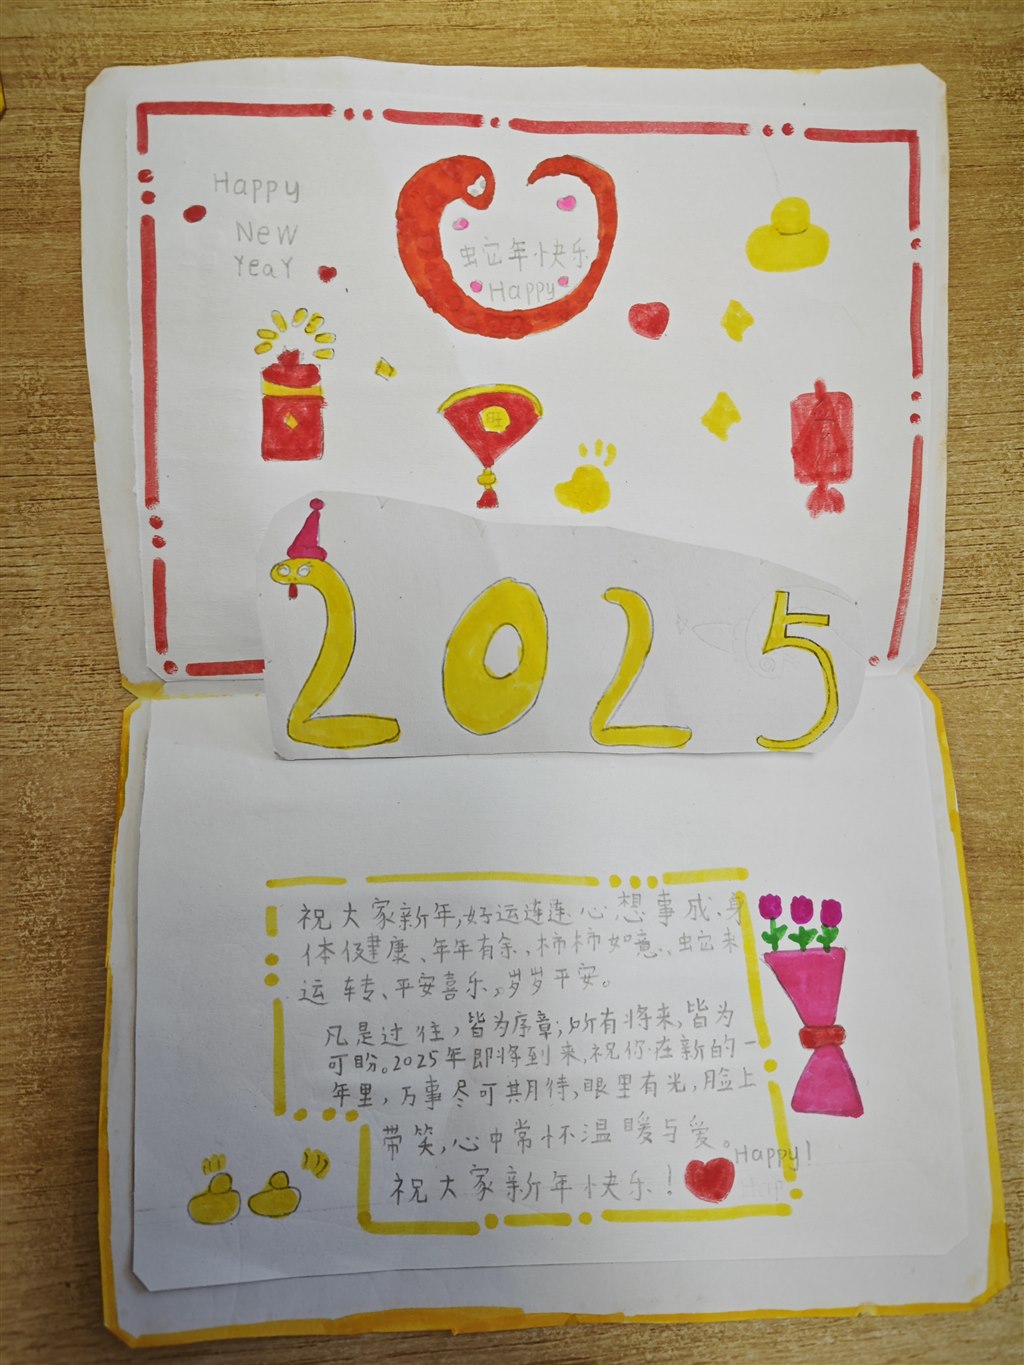 Happy
New
Year
蛇年快乐
Happy
旺
2025
祝大家新年,好运连连、心想事成、身
体健康、年年有余,柿柿如意、蛇来
运转、平安喜乐,岁岁平安。
凡是过往,皆为序章;所有将来,皆为
可盼。2025年即将到来,祝你在新的一
年里,万事尽可期待,眼里有光,脸上
带笑,心中常怀温暖与爱。
Happy!
祝大家新年快乐!